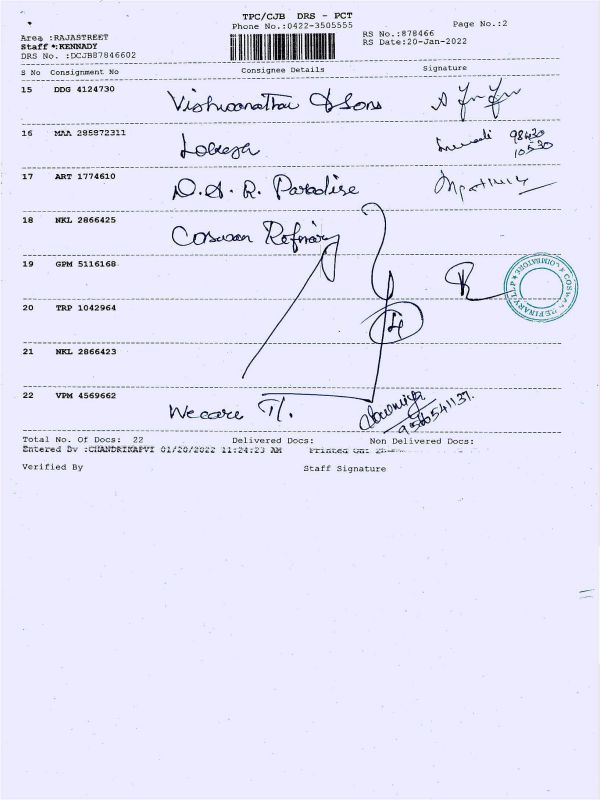 TPC/CJB DRS - PCT
Phone No.:0422-3505555
Page No.:2
Area :RAJASTREET
RS No.:878466
Staff :KENNADY
RS Date:20-Jan-2022
DRS No. :DCJB87846602
S No Consignment No Consignee Details Signature
15 DDG 4124730 Vishwanathan & Sons
16 MAA 285872311 98430
10530
17 ART 1774610 D.S.R. Paradise
18 NKL 2866425 Coswan Refinary
19 GPM 5116168
COIMBATORE REFINARY LLP
20 TRP 1042964
21 NKL 2866423
22 VPM 4569662 Wecare Sowmiya
9566541137.
Total No. Of Docs: 22 Delivered Docs: Non Delivered Docs:
Entered By :CHANDRIKAPVT 01/20/2022 11:24:23 AM Printed On:
Verified By Staff Signature